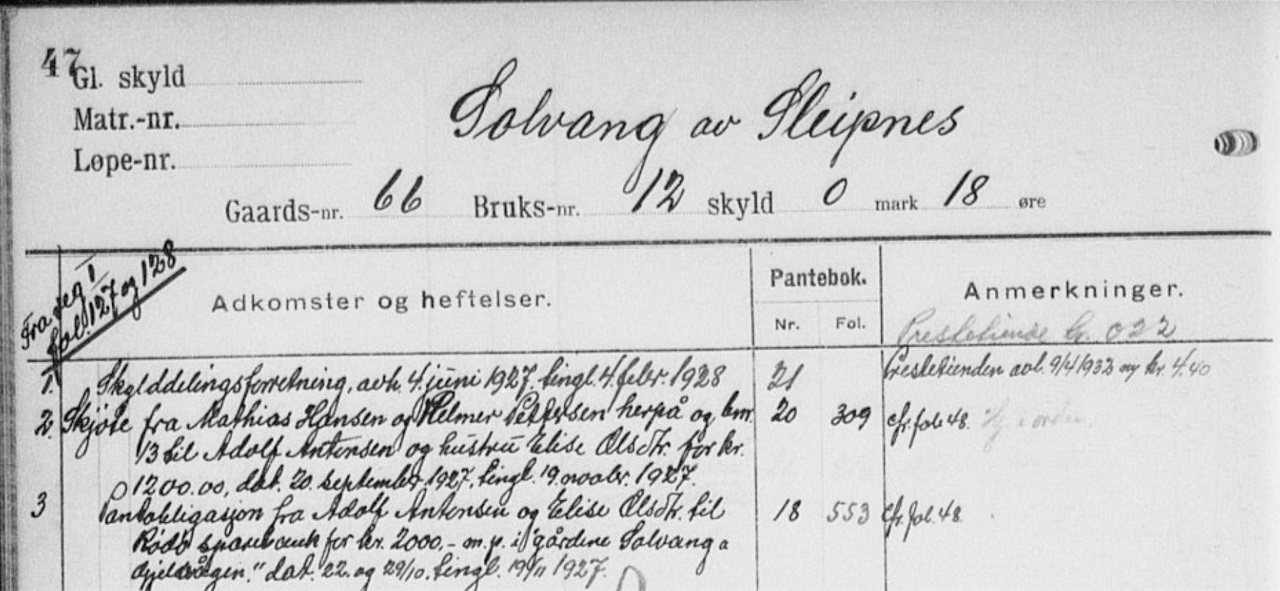 47
Gl. skyld
Matr.-nr.
Løpe-nr.
Solvang av Sleipnes
Gaards-nr. 66 Bruks-nr. 12 skyld 0 mark 18 øre
Fra reg 1
fol. 127 og 128
Adkomster og heftelser.
Pantebok.
Nr. Fol.
Anmerkninger.
Prestetiende kr. 022
1. Skylddelingsforretning, avh. 4. juni 1927, tingl. 4. febr. 1928 21 Prestetienden avl. 9/4 1932 kr. 4.40
2. Skjøte fra Mathias Hansen og Helmer Pettersen herpå og bnr. 20 309 cfr. fol. 48. i orden
13 til Adolf Antonsen og hustru Elise Olsdtr. for kr.
1200.00, dat. 20. september 1927, tingl. 19. novbr. 1927.
3 Pantobligasjon fra Adolf Antonsen og Elise Olsdtr. til 18 553 cfr. fol. 48.
Rødø sparebank for kr. 2000,- m.p. i "gårdene Solvang
dat. 22. og 29/10, tingl. 19/11 1927.